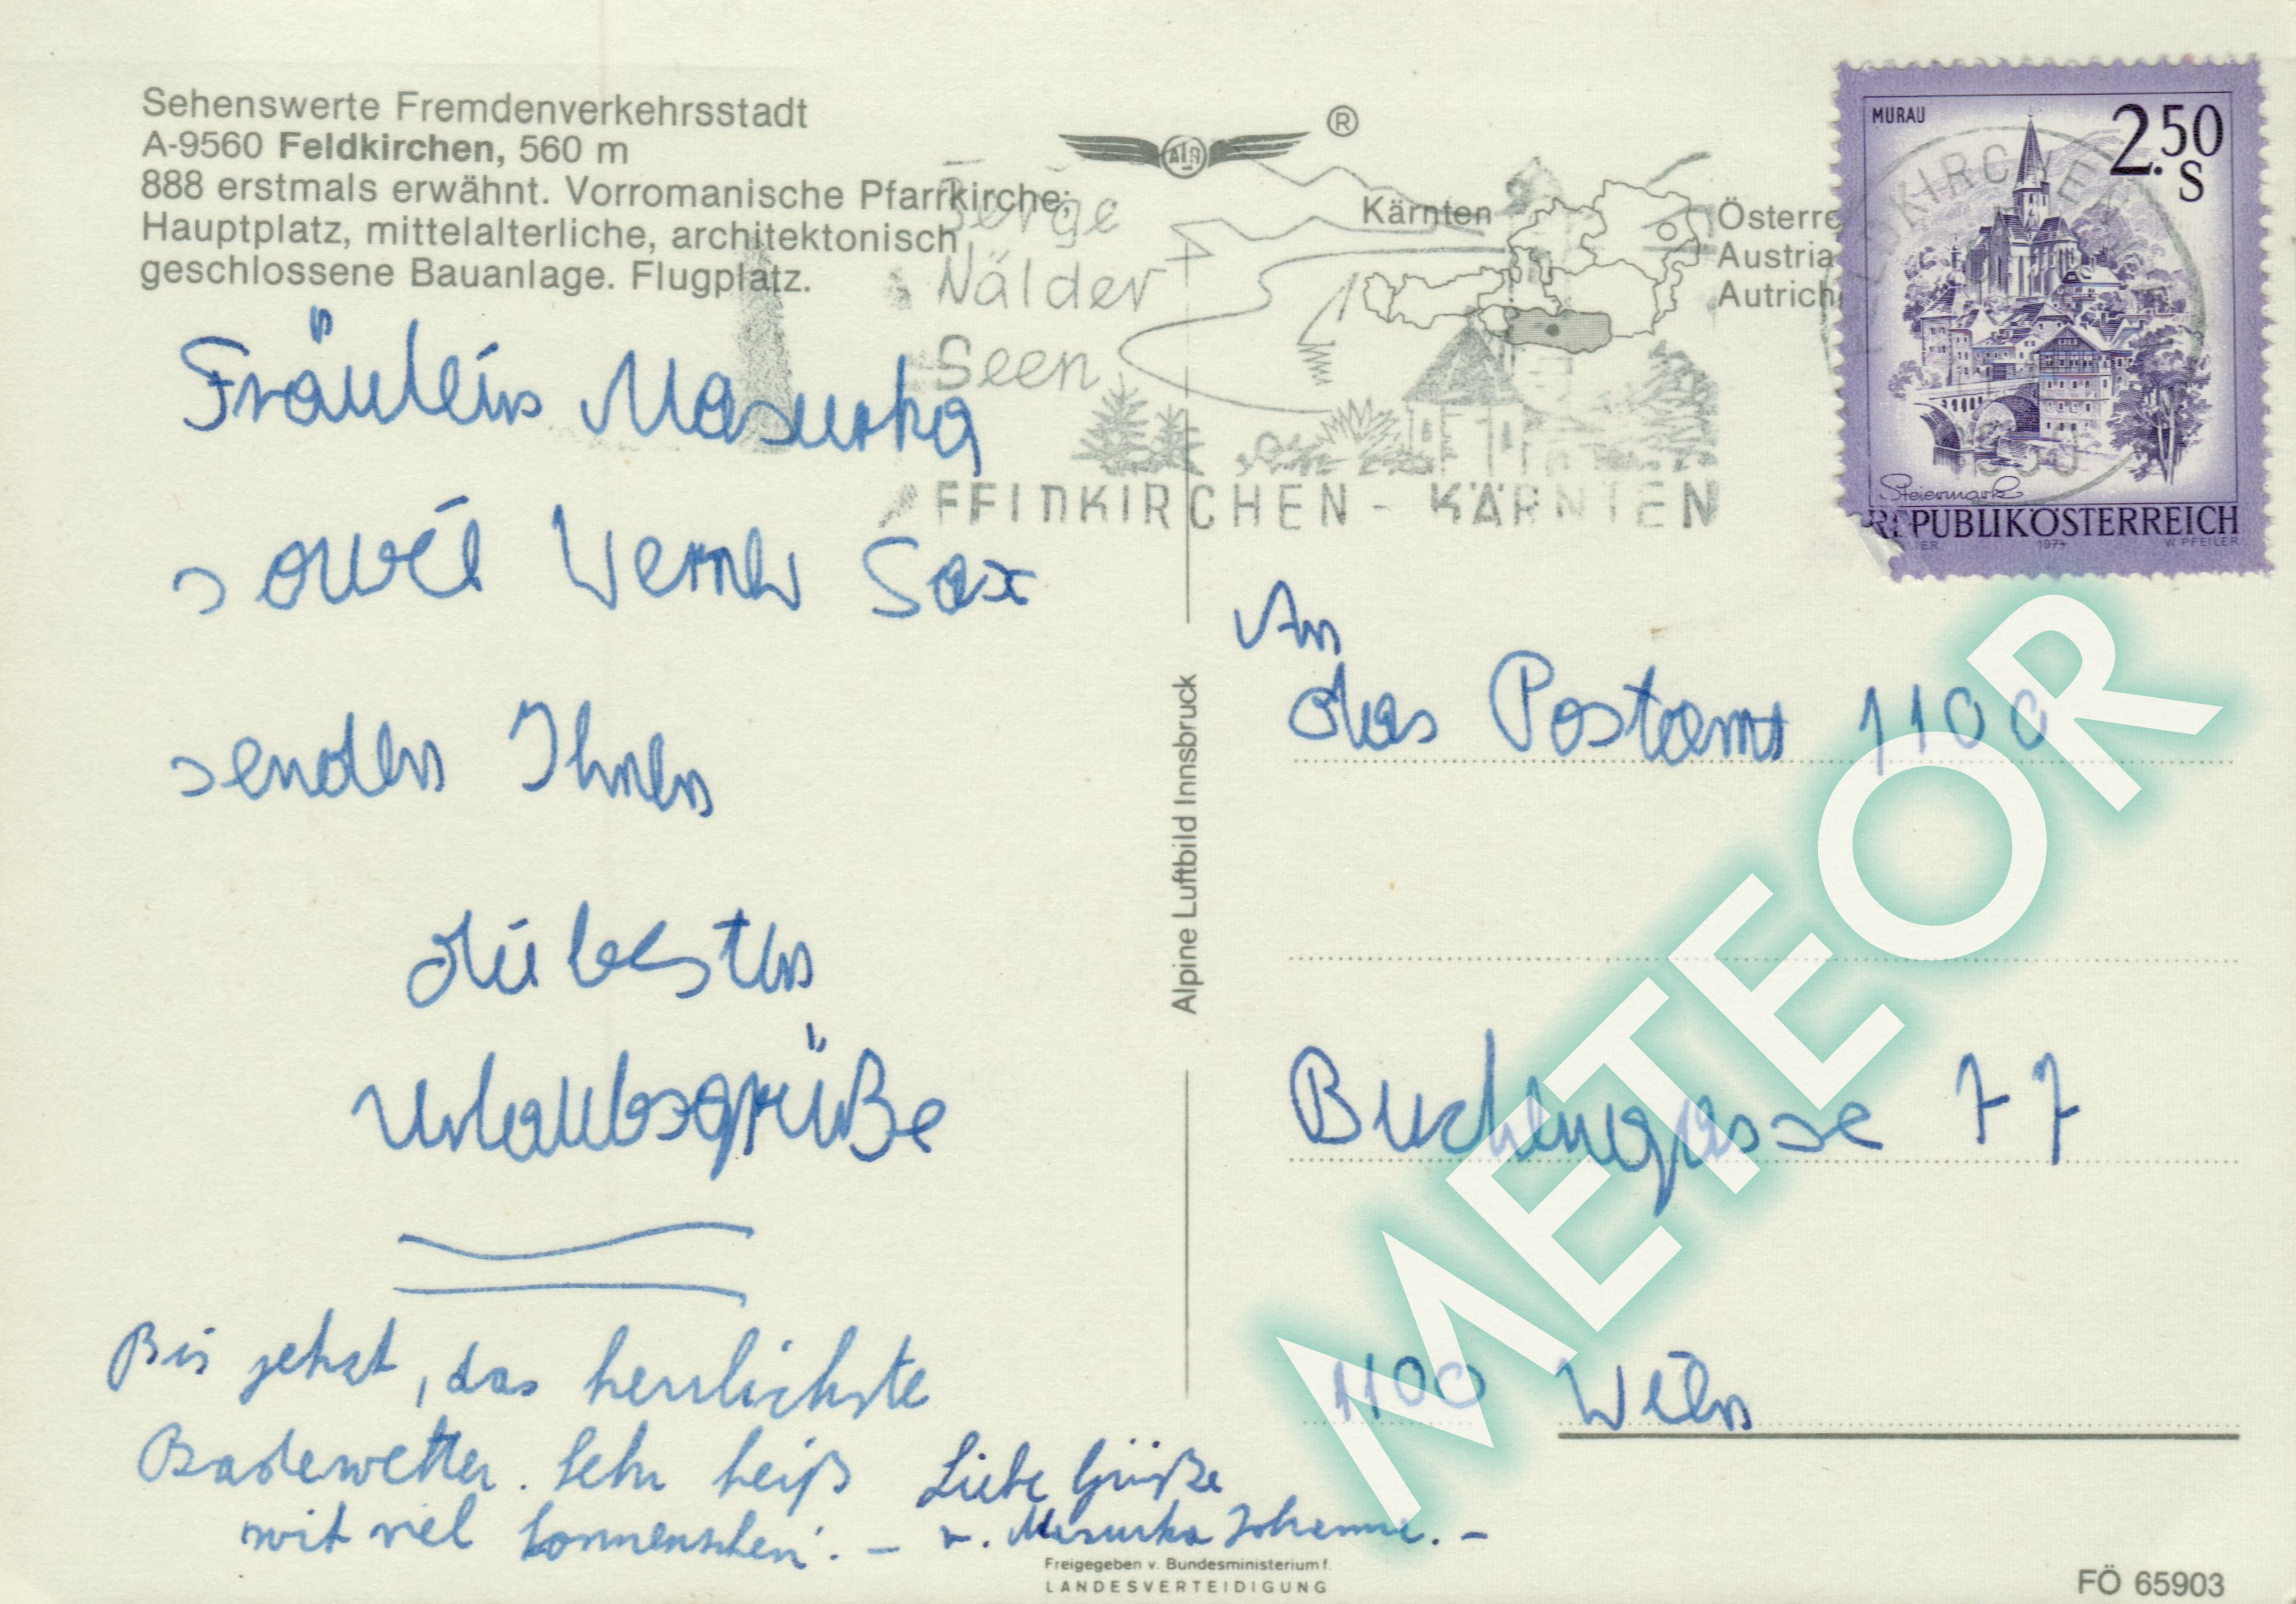 Sehenswerte Fremdenverkehrsstadt
A-9560 Feldkirchen, 560 m
888 erstmals erwähnt. Vorromanische Pfarrkirche;
Hauptplatz, mittelalterliche, architektonisch
geschlossene Bauanlage. Flugplatz.
AIR
®
Kärnten
Österre
Austria
Autrich
Berge
Wälder
Seen
FELDKIRCHEN - KÄRNTEN
MURAU
2.50
S
Steiermark
REPUBLIK ÖSTERREICH
1974
W. PFEILER
Fräulein Masurka
sowie Werner Sax
senden Ihnen
die besten
Urlaubsgrüße
Bis jetzt, das herrlichste
Badewetter. Sehr heiß
mit viel Sonnenschein. –
Liebe Grüße
v. Masurka Johanna. –
Alpine Luftbild Innsbruck
An
das Postamt 1100
Buchengasse 77
1100 Wien
METEOR
Freigegeben v. Bundesministerium f.
LANDESVERTEIDIGUNG
FÖ 65903